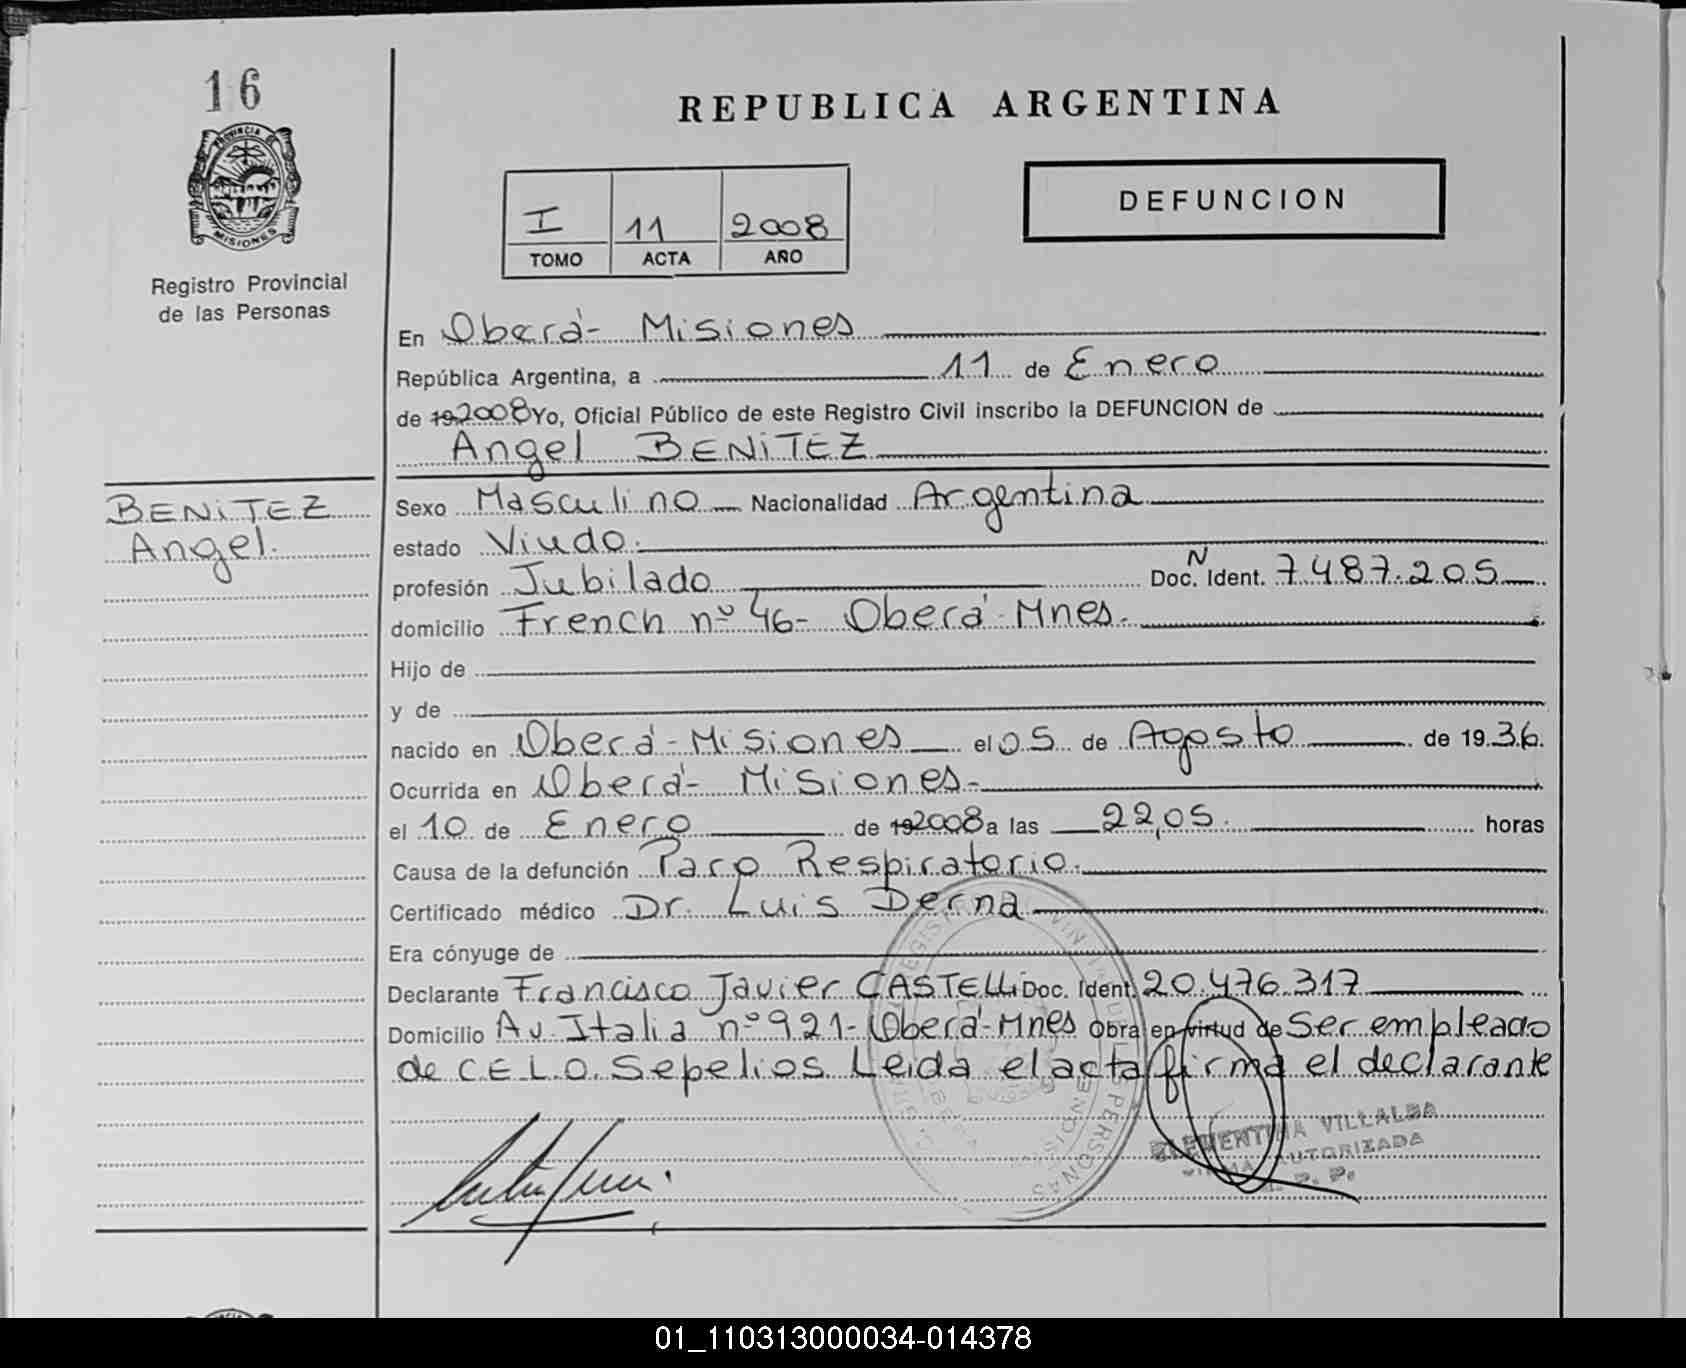 16
PROVINCIA DE
MISIONES
Registro Provincial
de las Personas
REPUBLICA ARGENTINA
I 11 2008
TOMO ACTA AÑO
DEFUNCION
En Oberá- Misiones
República Argentina, a 11 de Enero
de 192008 Yo, Oficial Público de este Registro Civil inscribo la DEFUNCION de
Angel BENITEZ
BENITEZ
Angel.
Sexo Masculino Nacionalidad Argentina
estado Viudo.
profesión Jubilado Doc. N Ident. 7487.205
domicilio French nº 46- Oberá-Mnes.
Hijo de
y de
nacido en Oberá-Misiones el 05 de Agosto de 1936.
Ocurrida en Oberá- Misiones-
el 10 de Enero de 192008 a las 22,05. horas
Causa de la defunción Paro Respiratorio.
Certificado médico Dr. Luis Derna
Era cónyuge de
Declarante Francisco Javier CASTELLI Doc. Ident. 20.476.317
Domicilio Av. Italia nº 921- Oberá-Mnes Obra en virtud de Ser empleado
de C.E.L.O. Sepelios. Leida el acta firma el declarante
CLEMENTINA VILLALBA
FIRMA AUTORIZADA
R. P. P.
01_110313000034-014378